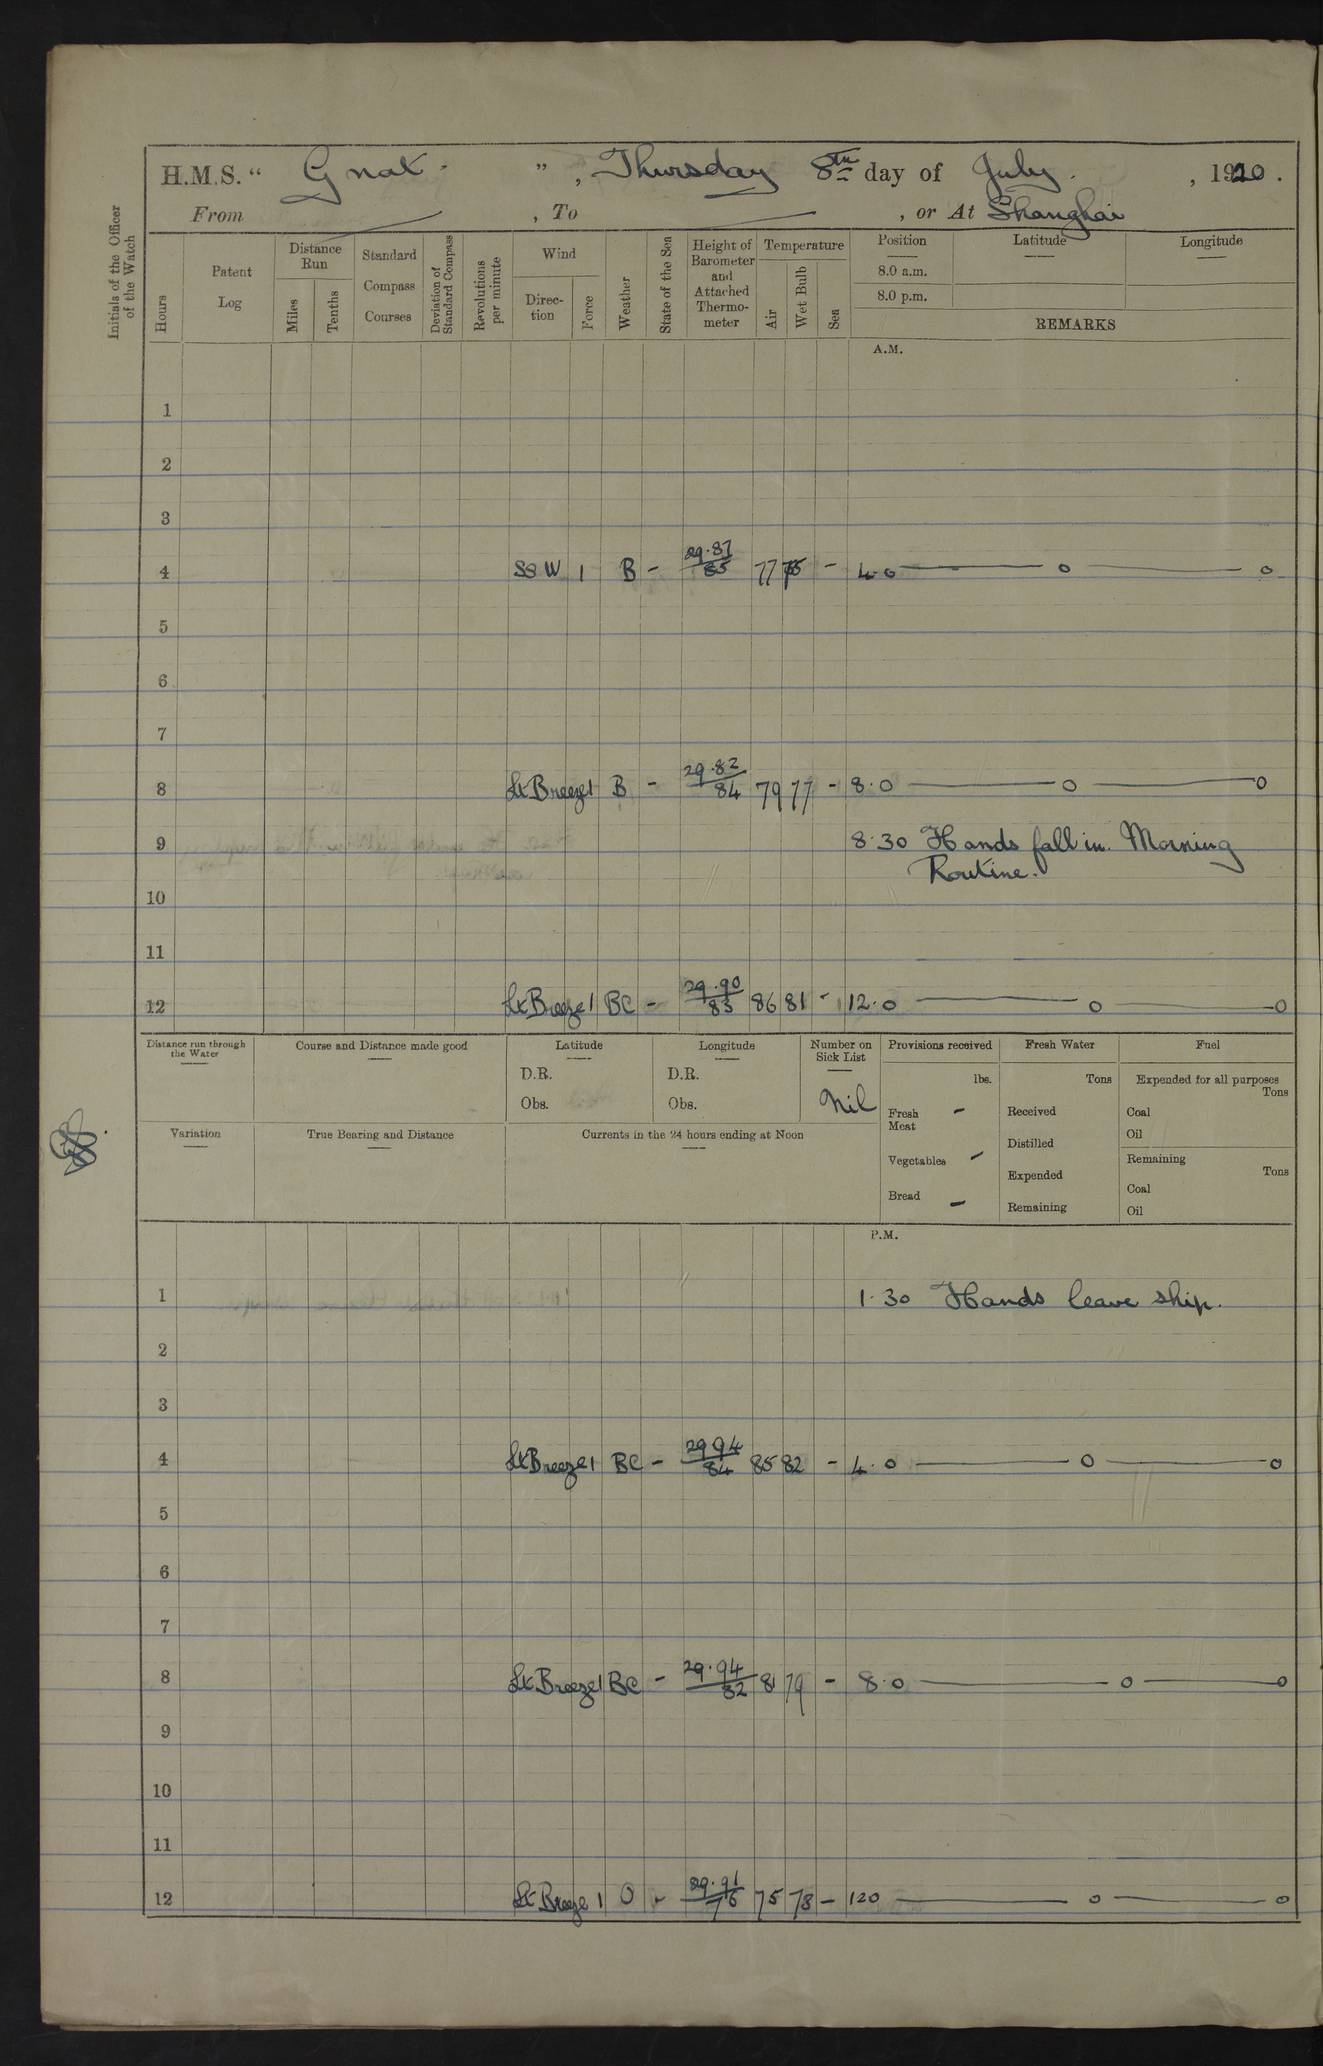 H.M.S. “ Gnat. ” , Thursday 8th day of July. , 1920.
From , To , or At Shanghai
Initials of the Officer of the Watch
Hours
Patent Log
Distance Run
Miles
Tenths
Standard Compass Courses
Deviation of Standard Compass
Revolutions per minute
Wind
Direc-tion
Force
Weather
State of the Sea
Height of Barometer and Attached Thermo-meter
Temperature
Air
Wet Bulb
Sea
Position Latitude Longitude
8.0 a.m.
8.0 p.m.
REMARKS
A.M.
1
2
3
4 SSW 1 B - 29.87/85 77 75 - 4.0 — o — o
5
6
7
8 Lt Breeze 1 B - 29.82/84 79 77 - 8.0 — o — o
9 8.30 Hands fall in. Morning
Routine.
10
11
12 Lt Breeze 1 BC - 29.90/83 86 81 - 12.0 — o — o
Distance run through the Water
Course and Distance made good
Latitude
D.R.
Obs.
Longitude
D.R.
Obs.
Number on Sick List
Nil
Provisions received
lbs.
Fresh Meat -
Vegetables -
Bread -
Fresh Water
Tons
Received
Distilled
Expended
Remaining
Fuel
Expended for all purposes
Tons
Coal
Oil
Remaining
Tons
Coal
Oil
Variation
True Bearing and Distance
Currents in the 24 hours ending at Noon
P.M.
1 1.30 Hands leave ship.
2
3
4 Lt Breeze 1 BC - 29.94/84 85 82 - 4.0 — o — o
5
6
7
8 Lt Breeze 1 BC - 29.94/82 81 79 - 8.0 — o — o
9
10
11
12 Lt Breeze 1 O - 29.91/76 75 78 - 120 — o — o